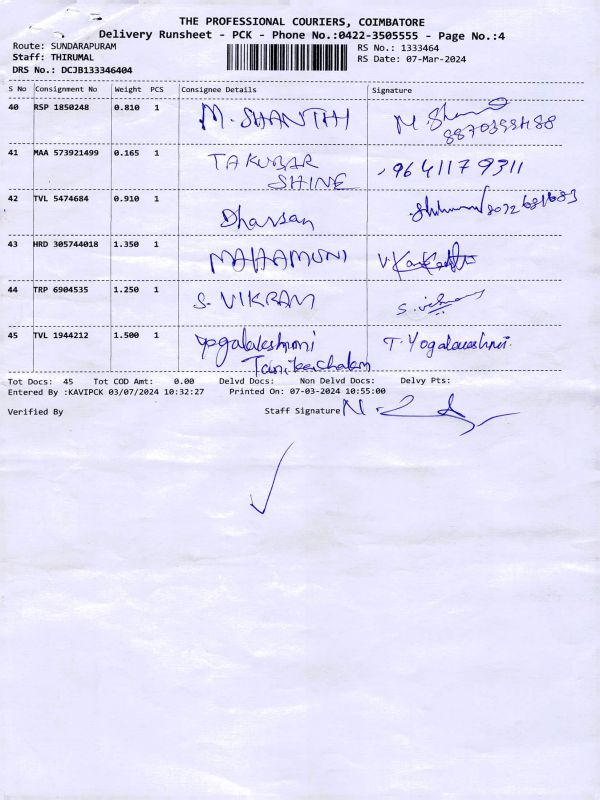 THE PROFESSIONAL COURIERS, COIMBATORE
Delivery Runsheet - PCK - Phone No.:0422-3505555 - Page No.:4
Route: SUNDARAPURAM
RS No.: 1333464
Staff: THIRUMAL
RS Date: 07-Mar-2024
DRS No.: DCJB133346404
S No Consignment No Weight PCS Consignee Details Signature
40 RSP 1850248 0.810 1 M. SHANTHI M. Shan
41 MAA 573921499 0.165 1 TAKUBAR 9641179311
SHINE
42 TVL 5474684 0.910 1 Dharsan
43 HRD 305744018 1.350 1 MAHAMUNI V.
44 TRP 6904535 1.250 1 S. VIKRAM S.
45 TVL 1944212 1.500 1 Yogalakshmi T. Yogalakshmi.
Tot Docs: 45 Tot COD Amt: 0.00 Delvd Docs: Non Delvd Docs: Delvy Pts:
Entered By :KAVIPCK 03/07/2024 10:32:27 Printed On: 07-03-2024 10:55:00
Verified By Staff Signature